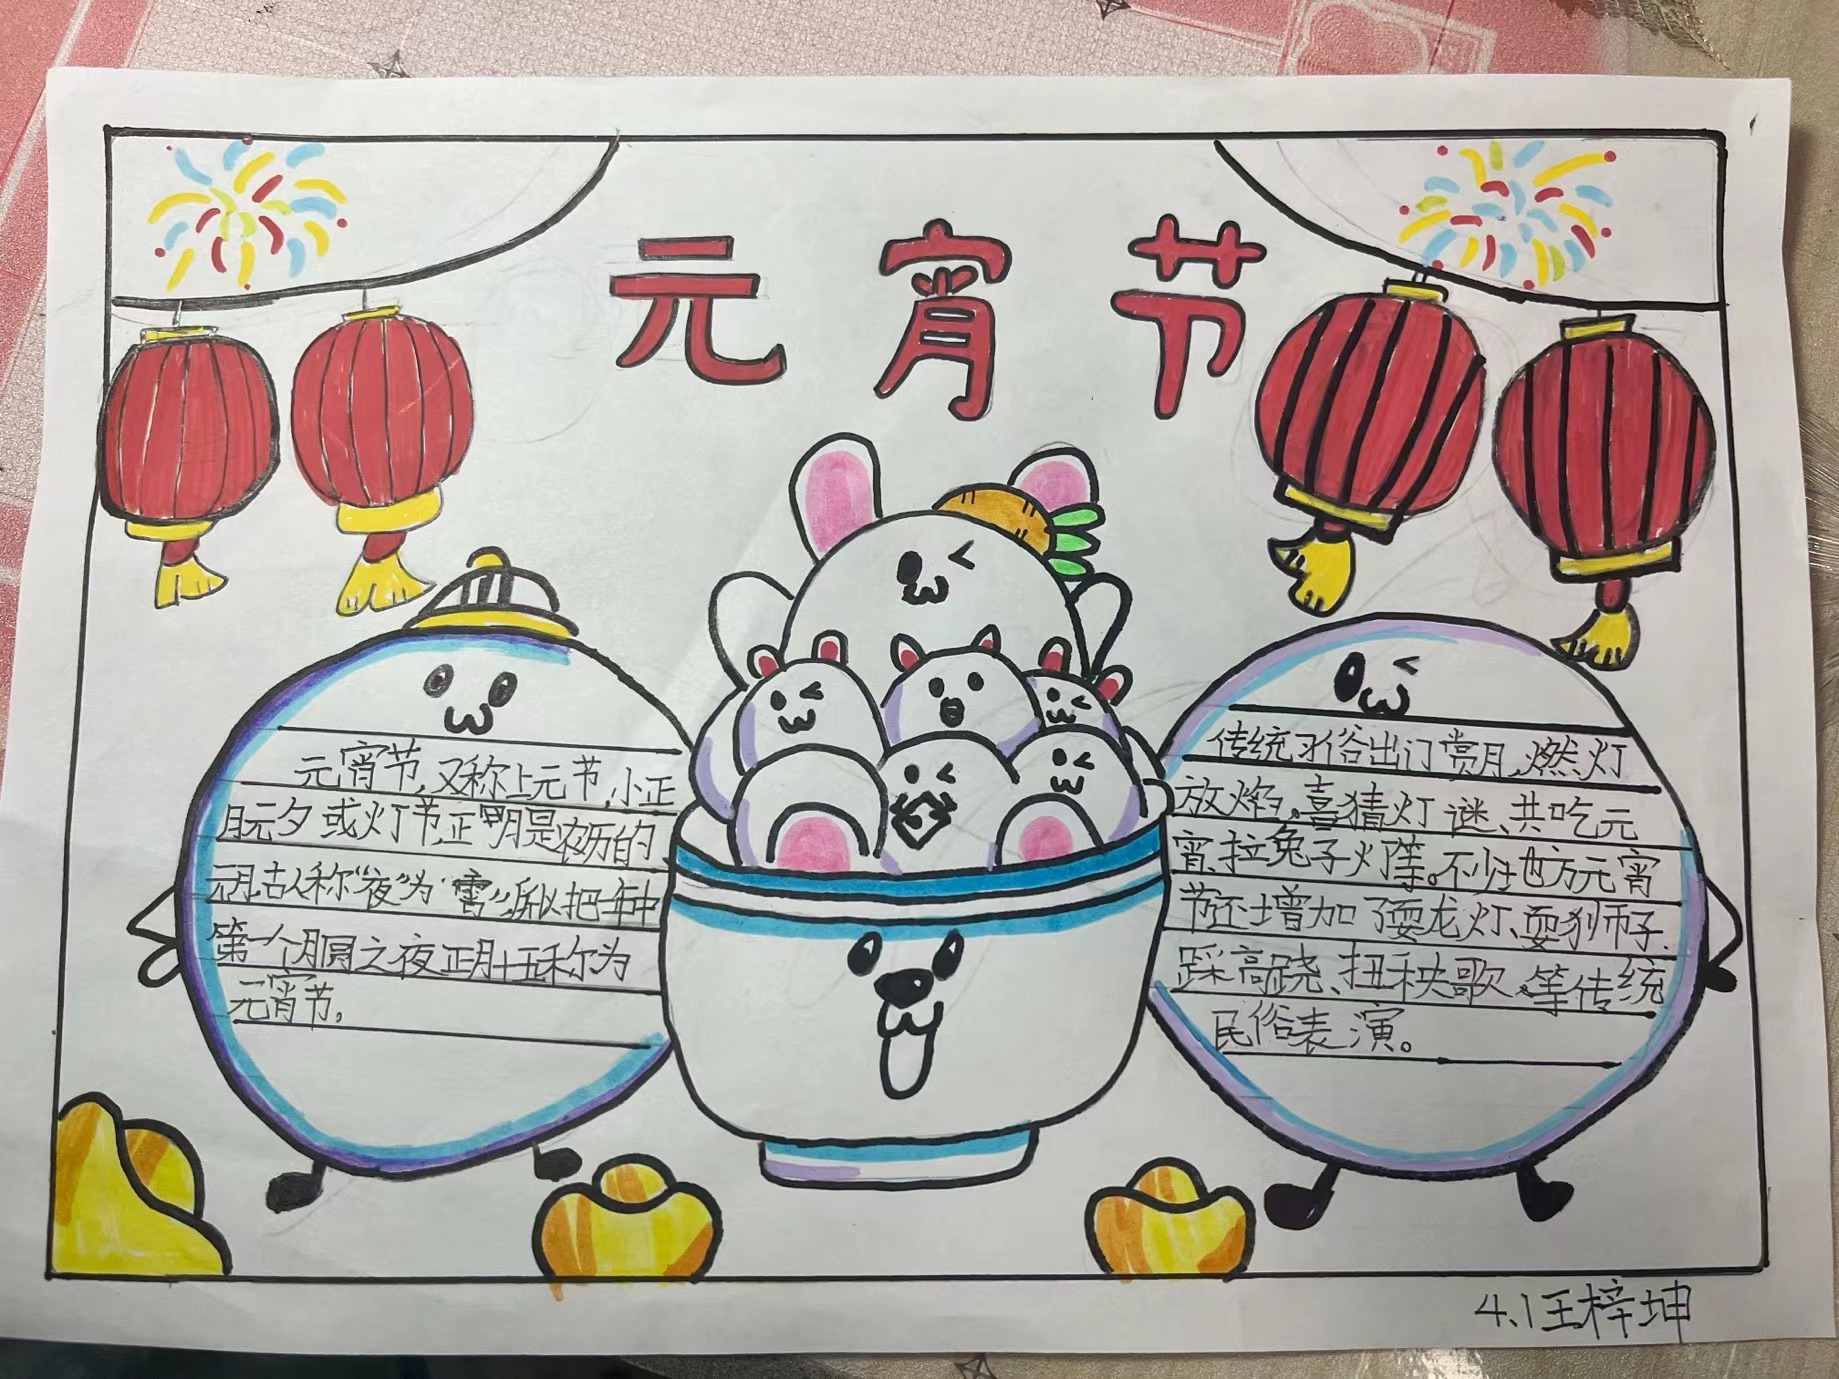 元宵节
元宵节,又称上元节,小正
月元夕或灯节,正月是农历的
元月,古人称“夜”为“宵”,所以把一年中
第一个月圆之夜正月十五称为
元宵节。
传统习俗出门赏月,燃灯
放焰,喜猜灯谜、共吃元
宵,拉兔子灯等。不少地方元宵
节还增加了耍龙灯、耍狮子、
踩高跷、扭秧歌等传统
民俗表演。
4.1王梓坤